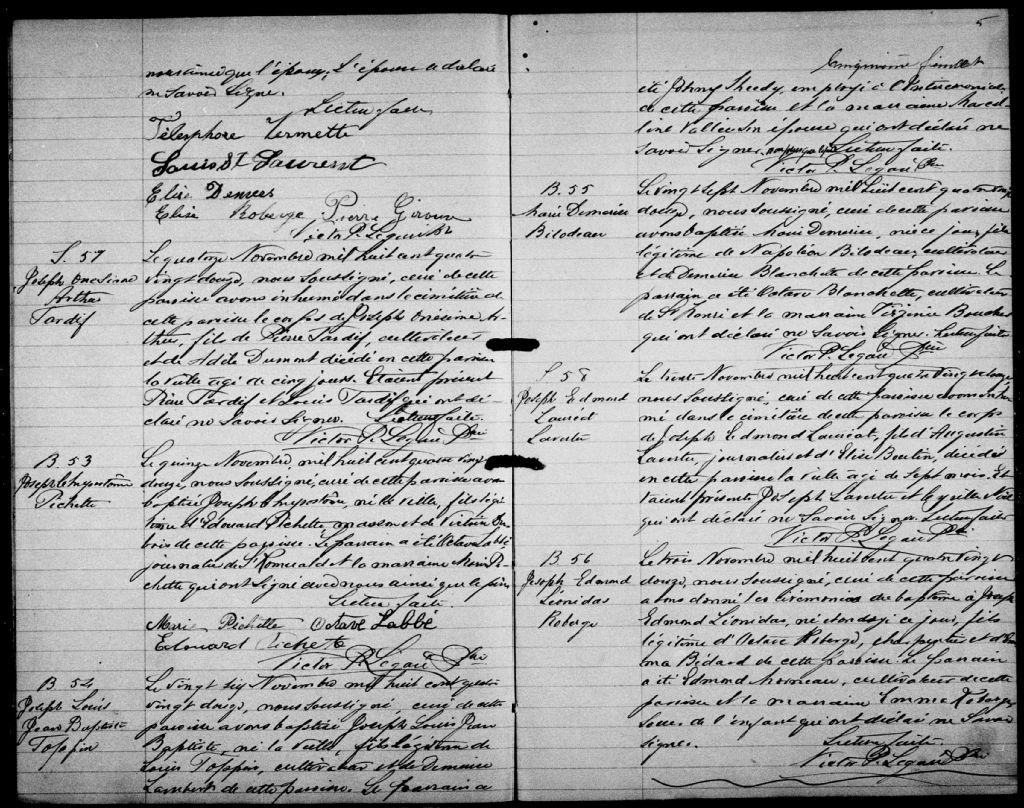 nous ainsi que l'époux. L'épouse a déclaré
ne savoir signer.
Lecture faite
Télesphore Vermette
Louis St Laurent
Elise Demers
Elise Roberge, Pierre Giroux
Victor P. Légaré Ptre
S. 57
Joseph Onésime
Arthur
Tardif
Le quatorze Novembre mil huit cent quatre
vingt douze, nous soussigné, curé de cette
paroisse avons inhumé dans le cimetière de
cette paroisse le corps de Joseph Onésime Ar
thur, fils de Pierre Tardif, cultivateur
et de Adèle Dumont décédé en cette paroisse
la veille agé de cinq jours. Etaient présents
Pierre Tardif et Louis Tardif qui ont dé-
claré ne savoir signer. Lecture faite.
Victor P. Légaré Ptre
B. 53
Joseph Chrysostôme
Pichette
Le quinze Novembre, mil huit cent quatre vingt
douze, nous soussigné, curé de cette paroisse avons
baptisé Joseph Chrysostôme, né la veille, fils légi
time d'Edouard Pichette, maçon et de Victoire Du
bois de cette paroisse. Le parrain a été Octave Labbé
journalier de St Romuald et la marraine Marie Pi
chette qui ont signé avec nous ainsi que le père.
Lecture faite.
Marie Pichette Octave Labbé
Edouard Pichette
Victor P. Légaré Ptre
B. 54
Joseph Louis
Jean Baptiste
Toppin
Le vingt six Novembre mil huit cent quatre
vingt douze, nous soussigné, curé de cette
paroisse avons baptisé Joseph Louis Jean
Baptiste, né la veille, fils légitime de
Louis Toppin, cultivateur et de Demerise
Lambert de cette paroisse. Le parrain a
5
Cinquième feuillet
été Johny Sheedy, employé à l'Intercolonial
de cette paroisse et la marraine Marcel
line Vallee son épouse qui ont déclaré ne
savoir signer. Lecture faite.
Victor P. Légaré Ptre
B. 55
Marie Demerise
Bilodeau
Le vingt sept Novembre mil huit cent quatre vingt
douze, nous soussigné, curé de cette paroisse
avons baptisé Marie Demerise, née ce jour, fille
légitime de Napoléon Bilodeau, cultivateur
et de Demerise Blanchette de cette paroisse. Le
parrain a été Octave Blanchette, cultivateur
de St Henri et la marraine Virginie Boucher
qui ont déclaré ne savoir signer. Lecture faite
Victor P. Légaré Ptre
S 58
Joseph Edmond
Lauréat
Lavertu
Le trente Novembre mil huit cent quatre vingt douze
nous soussigné, curé de cette paroisse avons inhu
mé dans le cimetière de cette paroisse le corps
de Joseph Edmond Lauréat, fils d'Augustin
Lavertu, journalier et d'Elise Boutin, décédé
en cette paroisse la veille agé de sept mois. Et
taient présents Joseph Lavertu et
qui ont déclaré ne savoir signer. Lecture faite
Victor P. Légaré Ptre
B. 56
Joseph Edmond
Léonidas
Roberge
Le trois Novembre mil huit cent quatre vingt
douze, nous soussigné, curé de cette paroisse
avons donné les cérémonies du baptême à Joseph
Edmond Léonidas, né ondoyé ce jour, fils
légitime d'Octave Roberge, charpentier et d'Em
ma Bédard de cette paroisse. Le parrain
a été Edmond Morneau, cultivateur de cette
paroisse et la marraine Emma Roberge,
soeur de l'enfant qui ont déclaré ne savoir
signer.
Lecture faite.
Victor P. Légaré Ptre